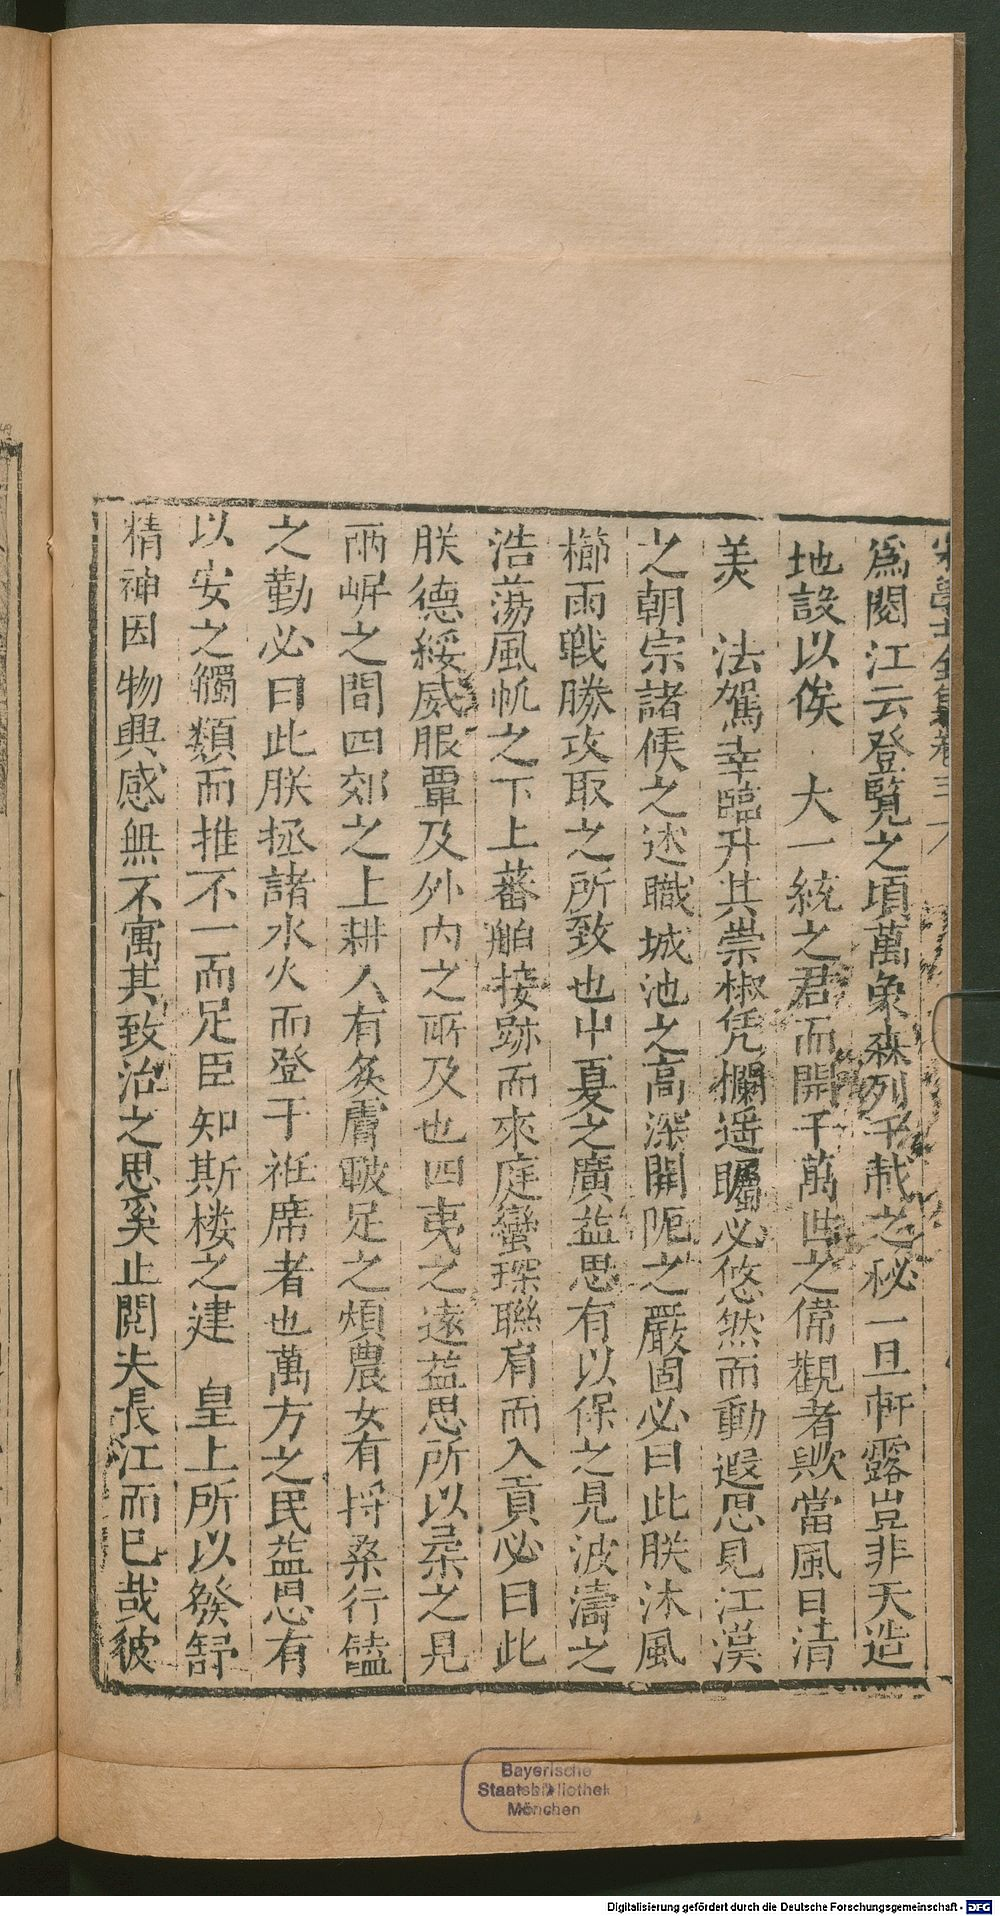 宋學士全集卷三
爲閱江云登覽之頃萬象森列千載之秘一旦軒露豈非天造
地設以俟　大一統之君而開千萬世之偉觀者歟當風日清
美　法駕幸臨升其崇椒凭欄遥矚必悠然而動遐思見江漢
之朝宗諸侯之述職城池之高深關阨之嚴固必曰此朕沐風
櫛雨戰勝攻取之所致也中夏之廣益思有以保之見波濤之
浩蕩風帆之下上蕃舶接跡而來庭蠻琛聯肩而入貢必曰此
朕德綏威服覃及外内之所及也四夷之遠益思所以柔之見
兩岸之間四郊之上耕人有炙膚皸足之煩農女有捋桑行饁
之勤必曰此朕拯諸水火而登于袵席者也萬方之民益思有
以安之觸類而推不一而足臣知斯楼之建　皇上所以發舒
精神因物興感無不寓其致治之思奚止閱夫長江而已哉彼
Bayerische
Staatsbibliothek
München
Digitalisierung gefördert durch die Deutsche Forschungsgemeinschaft - DFG